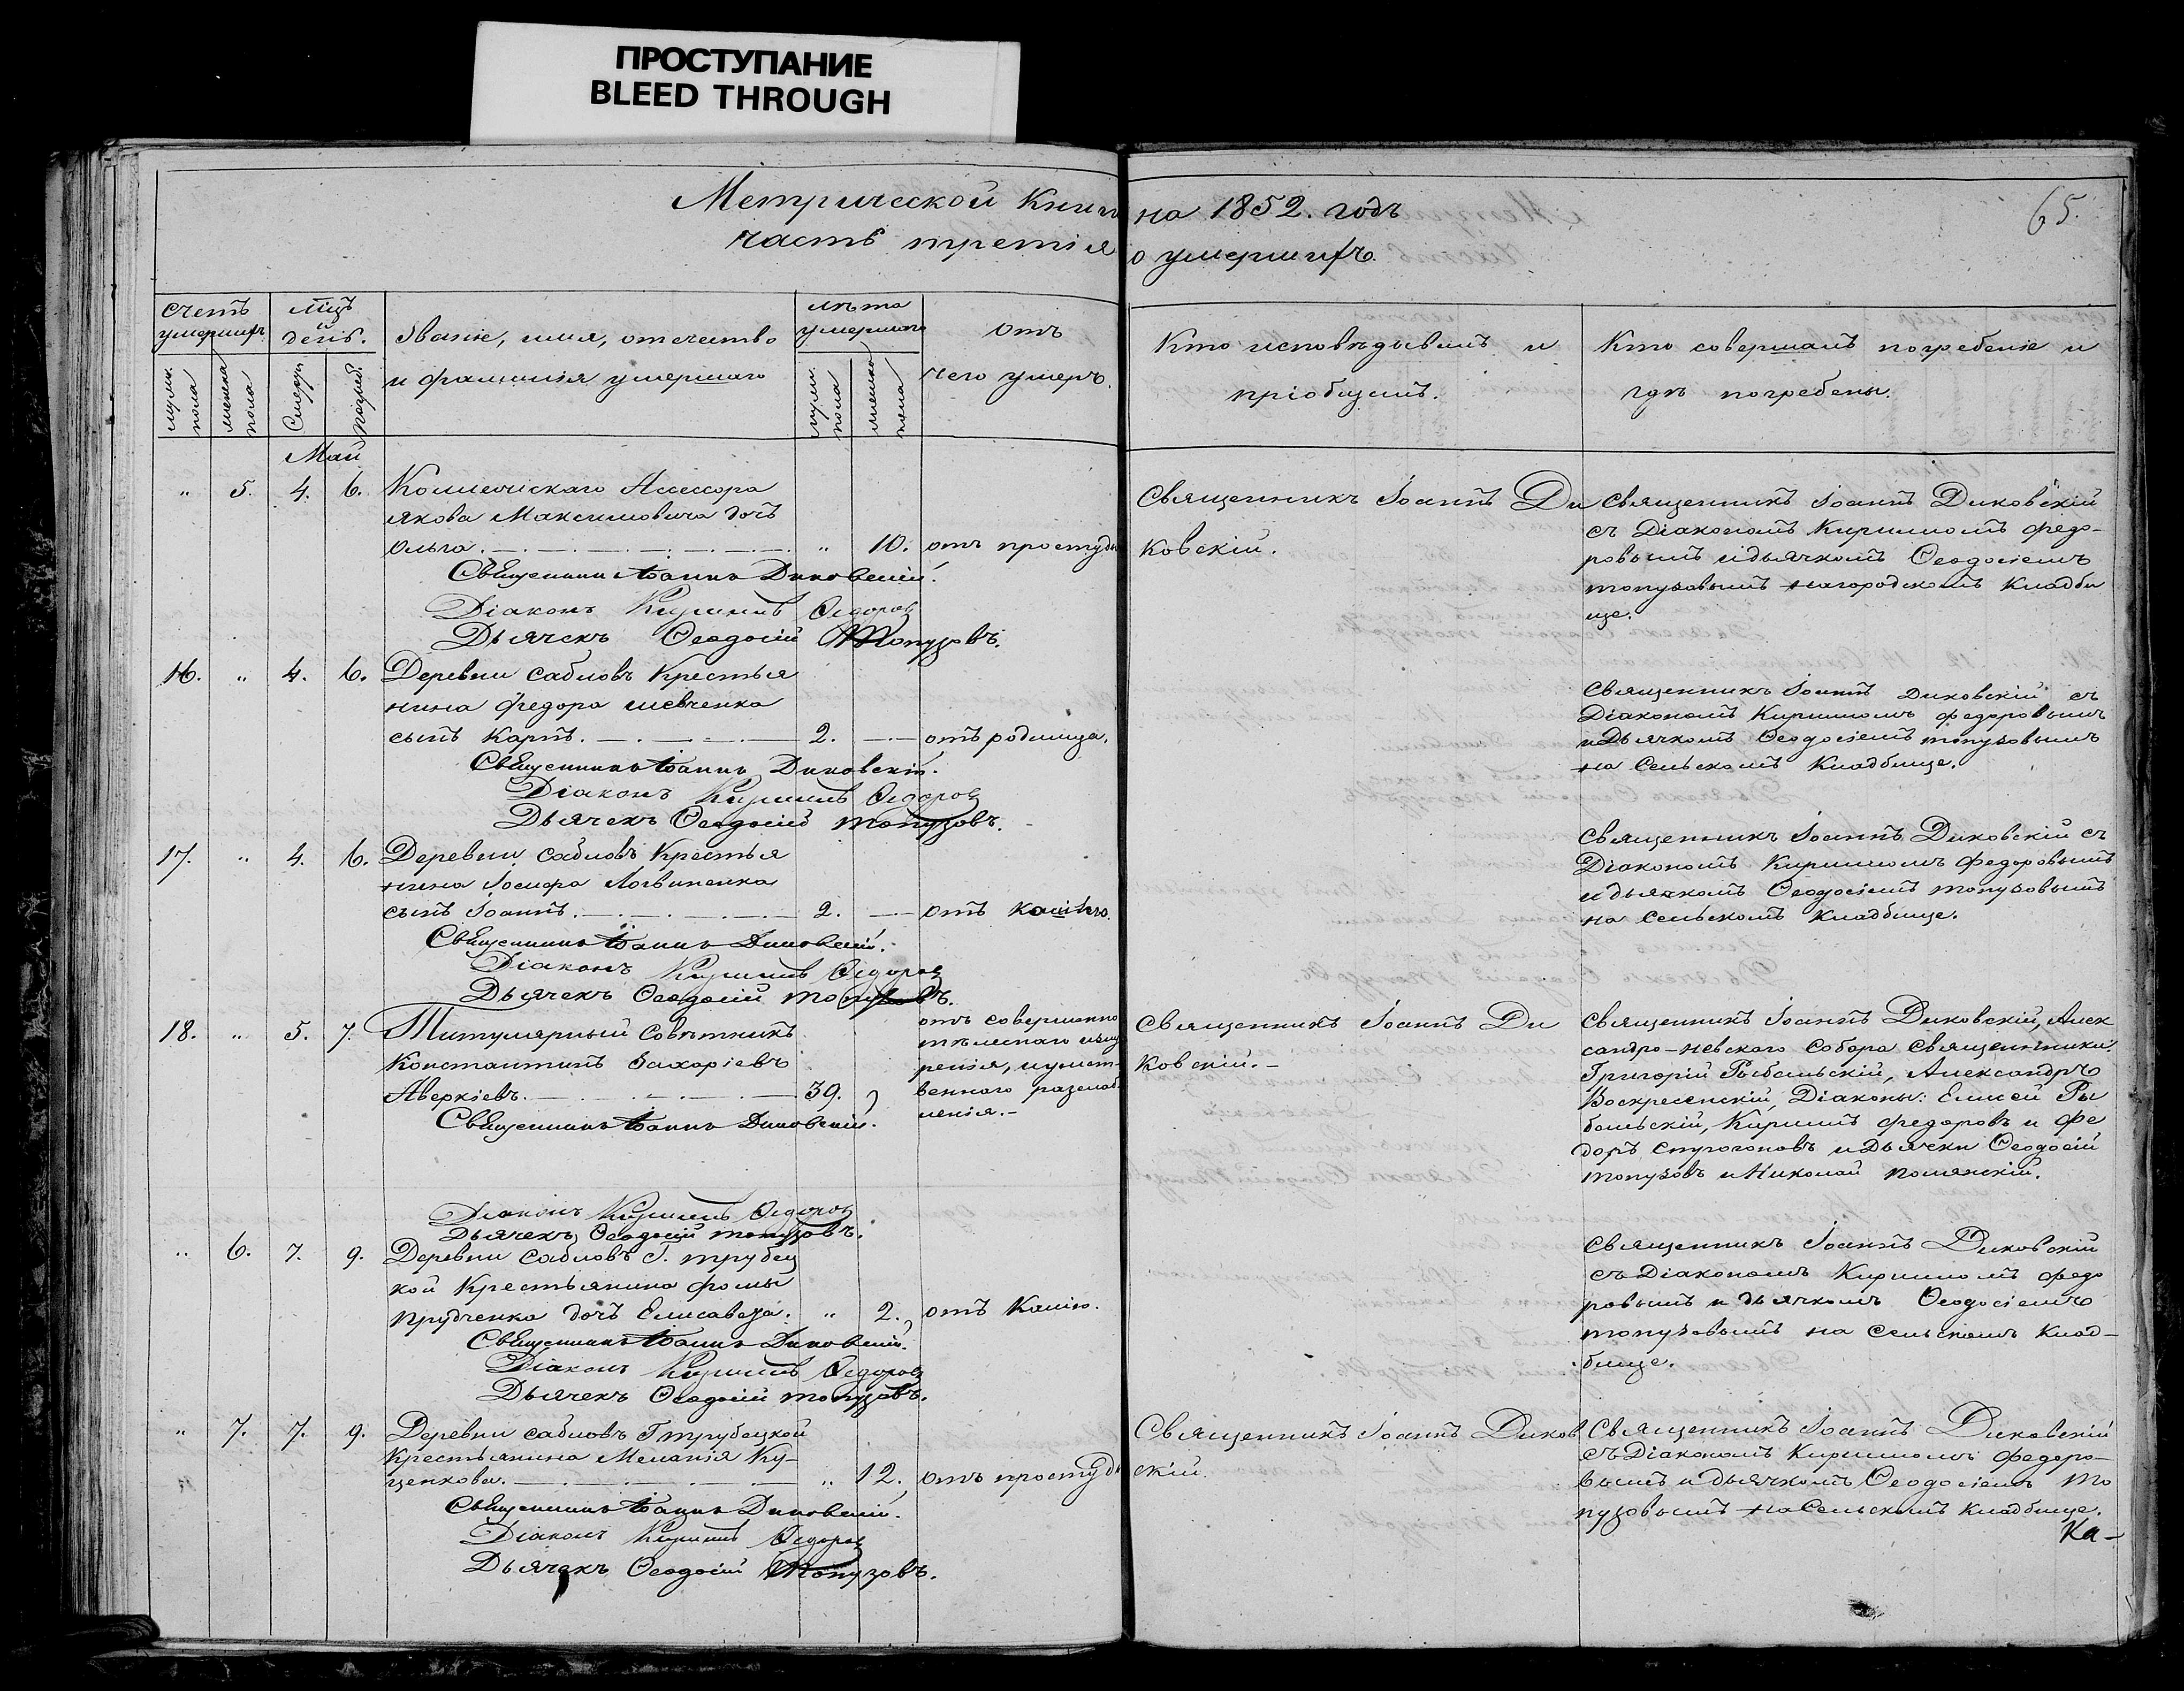 ПРОСТУПАНИЕ
BLEED THROUGH
Метрической Книги на 1852. годъ
65.
часть третія о умершихъ.
счетъ умершихъ
муж. пола
женска пола
мцъ и день.
Смерти
Погреб.
Званіе, имя, отечество
и фамилія умершаго
лѣта умершаго
муж. пола
женско пола
отъ
чего умеръ.
Кто исповѣдывалъ и
пріобщалъ.
Кто совершалъ погребеніе и
гдѣ погребены.
Май
" 5. 4. 6. Коллежскаго Ассесора
Якова Максимовича дочь
Ольга. " 10. отъ простуды
Священникъ Іоаннъ Диковскій.
Діаконъ Кириллъ Ѳедоровъ
Дьячекъ Ѳеодосій Топузовъ.
Священникъ Іоаннъ Ди
ковскій.
Священникъ Іоаннъ Диковскій
съ Діакономъ Кирилломъ Федо-
ровымъ и дьячкомъ Ѳеодосіемъ
топузовымъ на городскомъ Кладби
ще.
16. " 4. 6. Деревни Сабловъ Крестья
нина Федора Шевченка
сынъ Карпъ. 2. отъ родимца.
Священникъ Іоаннъ Диковскій.
Діаконъ Кириллъ Ѳедоровъ
Дьячекъ Ѳеодосій Топузовъ.
Священникъ Іоаннъ Диковскій съ
Діакономъ Кирилломъ Федоровымъ
и Дьячкомъ Ѳеодосіемъ топузовымъ
на Сельскомъ Кладбище.
17. " 4. 6. Деревни Сабловъ Крестья
нина Іосифа Логвиненка
сынъ Іоаннъ. 2. отъ кашлю.
Священникъ Іоаннъ Диковскій.
Діаконъ Кириллъ Ѳедоровъ
Дьячекъ Ѳеодосій Топузовъ.
Священникъ Іоаннъ Диковскій съ
Діакономъ Кирилломъ Федоровымъ
и дьячкомъ Ѳеодосіемъ топузовымъ
на Сельскомъ Кладбище.
18. " 5. 7. Титулярный Совѣтникъ
Константинъ Захаріевъ
Аверкіевъ. 39.
отъ совершенно
тѣлеснаго изну
ренія, и умст-
венного разслаб
ленія.-
Священникъ Іоаннъ Диковскій.
Діаконъ Кириллъ Ѳедоровъ
Дьячекъ Ѳеодосій Топузовъ.
Священникъ Іоаннъ Ди
ковскій.-
Священникъ Іоаннъ Диковскій, Алек
сандро-невского Собора Священники:
Григорій Рыбальскій, Александръ
Воскресенскій, Діаконы: Елисей Ры
бальскій, Кириллъ Федоровъ и Фе
доръ Строгоновъ и Дьячки Ѳеодосій
топузовъ и Николай Полянскій.
" 6. 7. 9. Деревни Сабловъ Г. Трубец
кой Крестьянина Фомы
Прудченка дочь Елисавета. " 2. отъ Кашлю.
Священникъ Іоаннъ Диковскій.
Діаконъ Кириллъ Ѳедоровъ
Дьячекъ Ѳеодосій Топузовъ.
Священникъ Іоаннъ Диковскій
съ Діакономъ Кирилломъ Федо
ровымъ и дьячкомъ Ѳеодосіемъ
топузовымъ на Сельскомъ Клад-
бище.
" 7. 7. 9. Деревни Сабловъ Г Трубецкой
Крестьянина Меланія Ку-
ценкова. " 12. отъ простуды
Священникъ Іоаннъ Диковскій.
Діаконъ Кириллъ Ѳедоровъ
Дьячекъ Ѳеодосій Топузовъ.
Священникъ Іоаннъ Диков
скій.
Священникъ Іоаннъ Диковскій
съ Діакономъ Кирилломъ Федоро-
вымъ и дьячкомъ Ѳеодосіемъ То
пузовымъ на Сельскомъ Кладбище.
Ка-